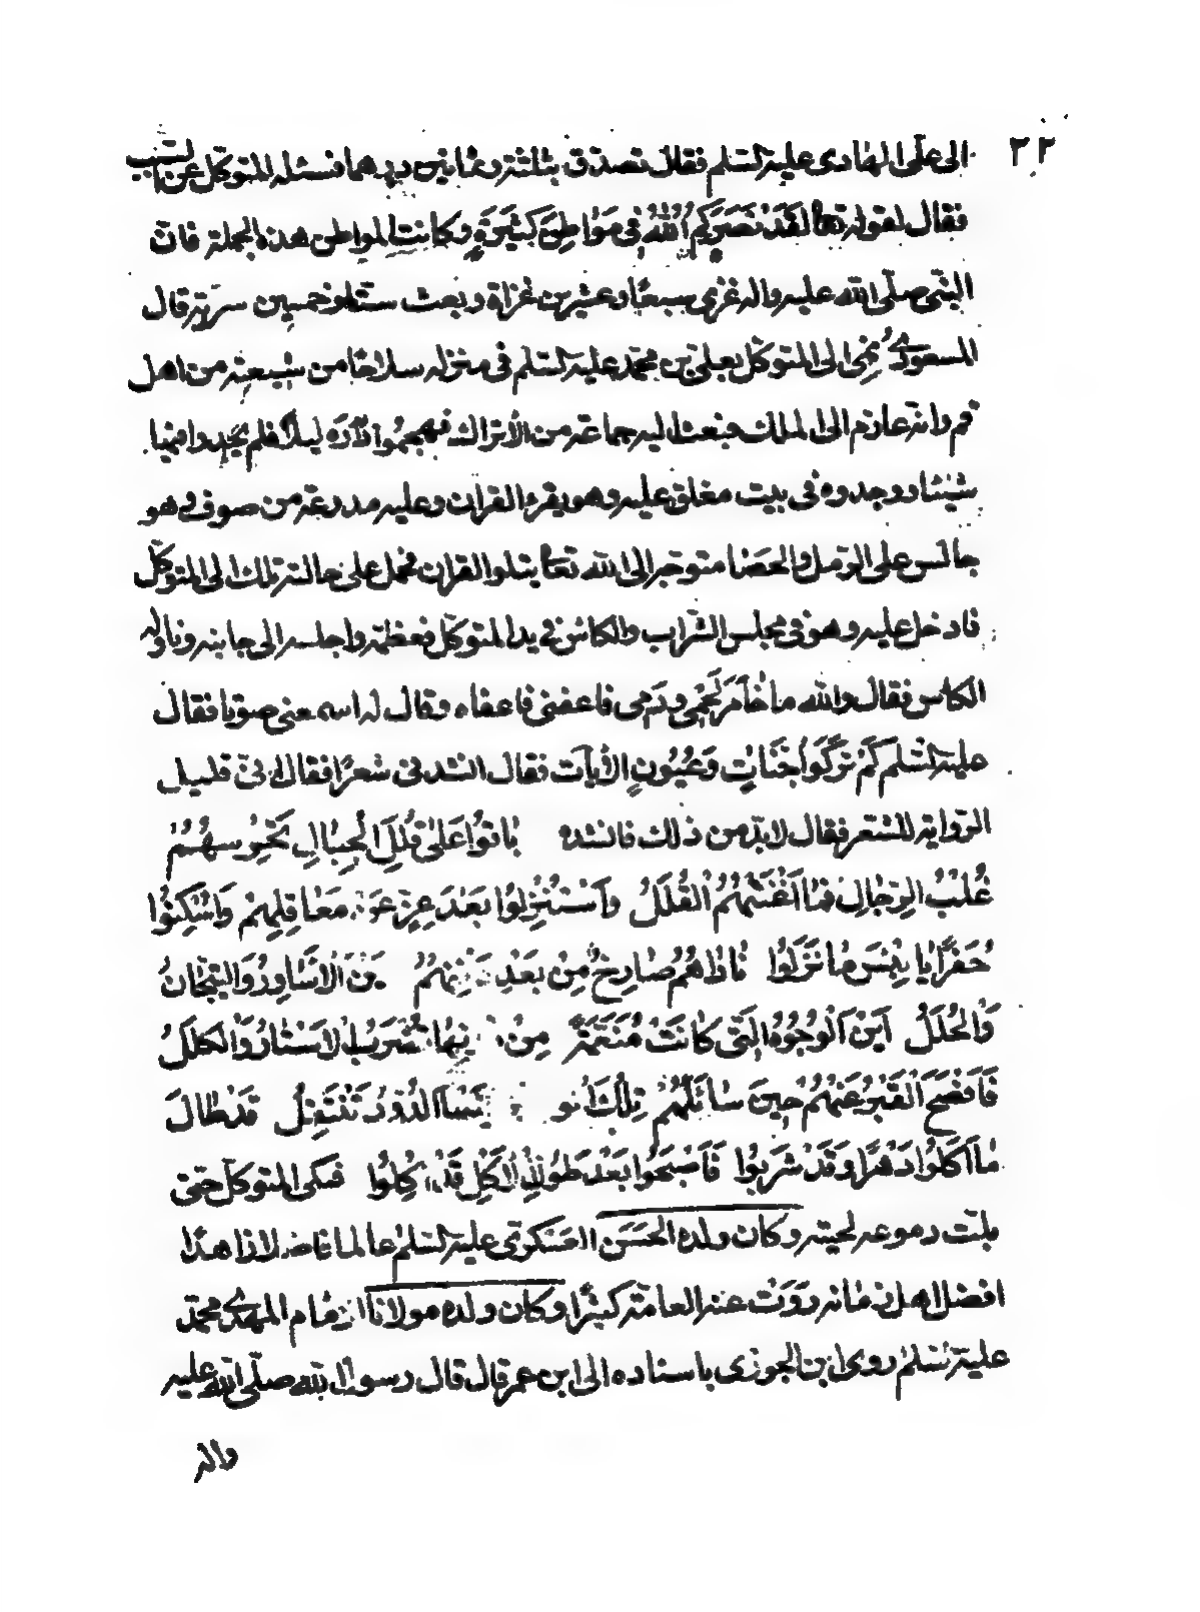 ٢٢
الى على الهادى عليه السلم فقال تصدق بثلثة وثمانين درهما فسئله المتوكل عن السبب
فقال لقوله تعالى لَقَدْ نَصَرَكُمُ اللهُ فِى مَوَاطِنَ كَثِيرَةٍ وكانت المواطن هذه الجملة فان
النبى صلى الله عليه واله غزى سبعا وعشرين غزاة وبعث ستا وخمسين سرية قال
المسعودى نمى الى المتوكل بعلى بن محمد عليه السلم فى منزله سلاحا من شيعته من اهل
قم وانه عازم الى الملك فبعث اليه جماعة من الأتراك فهجموا داره ليلا فلم يجدوا فيها
شيئا ووجدوه فى بيت مغلق عليه وهو يقرء القران وعليه مدرعة من صوف وهو
جالس على الرمل والحصا متوجه الى الله تعالى يتلو القران فحمل على حالته تلك الى المتوكل
فادخل عليه وهو فى مجلس الشراب والكاس فى يد المتوكل فعظمه واجلسه الى جانبه وناوله
الكاس فقال والله ما خامر لحمى ودمى فاعفنى فاعفاه وقال له اسمعنى صوتا فقال
عليه السلم كَمْ تَرَكُوا جَنَّاتٍ وَعُيُونٍ الأيات فقال انشدنى شعرًا فقال انى قليل
الرواية للشعر فقال لابد من ذلك فانشده بَاتُوا عَلَى قُلَلِ الْجِبَالِ تَحْرُسُهُمْ
غُلْبُ الرِّجَالِ فَمَا اَغْنَتْهُمُ الْقُلَلُ وَاسْتُنْزِلُوا بَعْدَ عِزٍّ عَنْ مَعَاقِلِهِمْ وَاُسْكِنُوا
حُفَرًا يَا بِئْسَ مَا نَزَلُوا نَادَاهُمْ صَارِخٌ مِنْ بَعْدِ دَفْنِهُمُ اَيْنَ الْاَسَاوِرُ وَالتِّيجَانُ
وَالْحُلَلُ اَيْنَ الْوُجُوهُ الَّتِى كَانَتْ مُنَعَّمَةً مِنْ دُونِهَا تُضْرَبُ الْاَسْتَارُ وَالْكِلَلُ
فَاَفْصَحَ الْقَبْرُ عَنْهُمْ حِينَ سَائَلَهُمْ تِلْكَ الْوُجُوهُ عَلَيْهَا الدُّودُ تَنْتَقِلُ قَدْ طَالَ
مَا اَكَلُوا دَهْرًا وَقَدْ شَرِبُوا فَاَصْبَحُوا بَعْدَ طُولِ الْاَكْلِ قَدْ اُكِلُوا فبكى المتوكل حتى
بلت دموعه لحيته وكان ولده الحَسَن العسكرى عليه السلم عالما فاضلا زاهدًا
افضل اهل زمانه رَوَت عنه العامة كثيرًا وكان ولده مولانا الامام المهدى محمد
عليه السلم روى ابن الجوزى باسناده الى ابن عمر قال قال رسول الله صلى الله عليه
واله